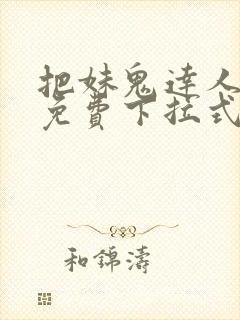 把妹鬼達人
免費下拉式
和錦濤